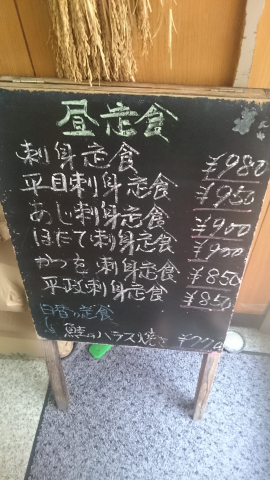 昼定食
刺身定食 ¥980
平目刺身定食 ¥950
あじ刺身定食 ¥900
ほたて刺身定食 ¥900
かつを刺身定食 ¥850
平政刺身定食 ¥850
日替り定食
鮭のハラス焼き